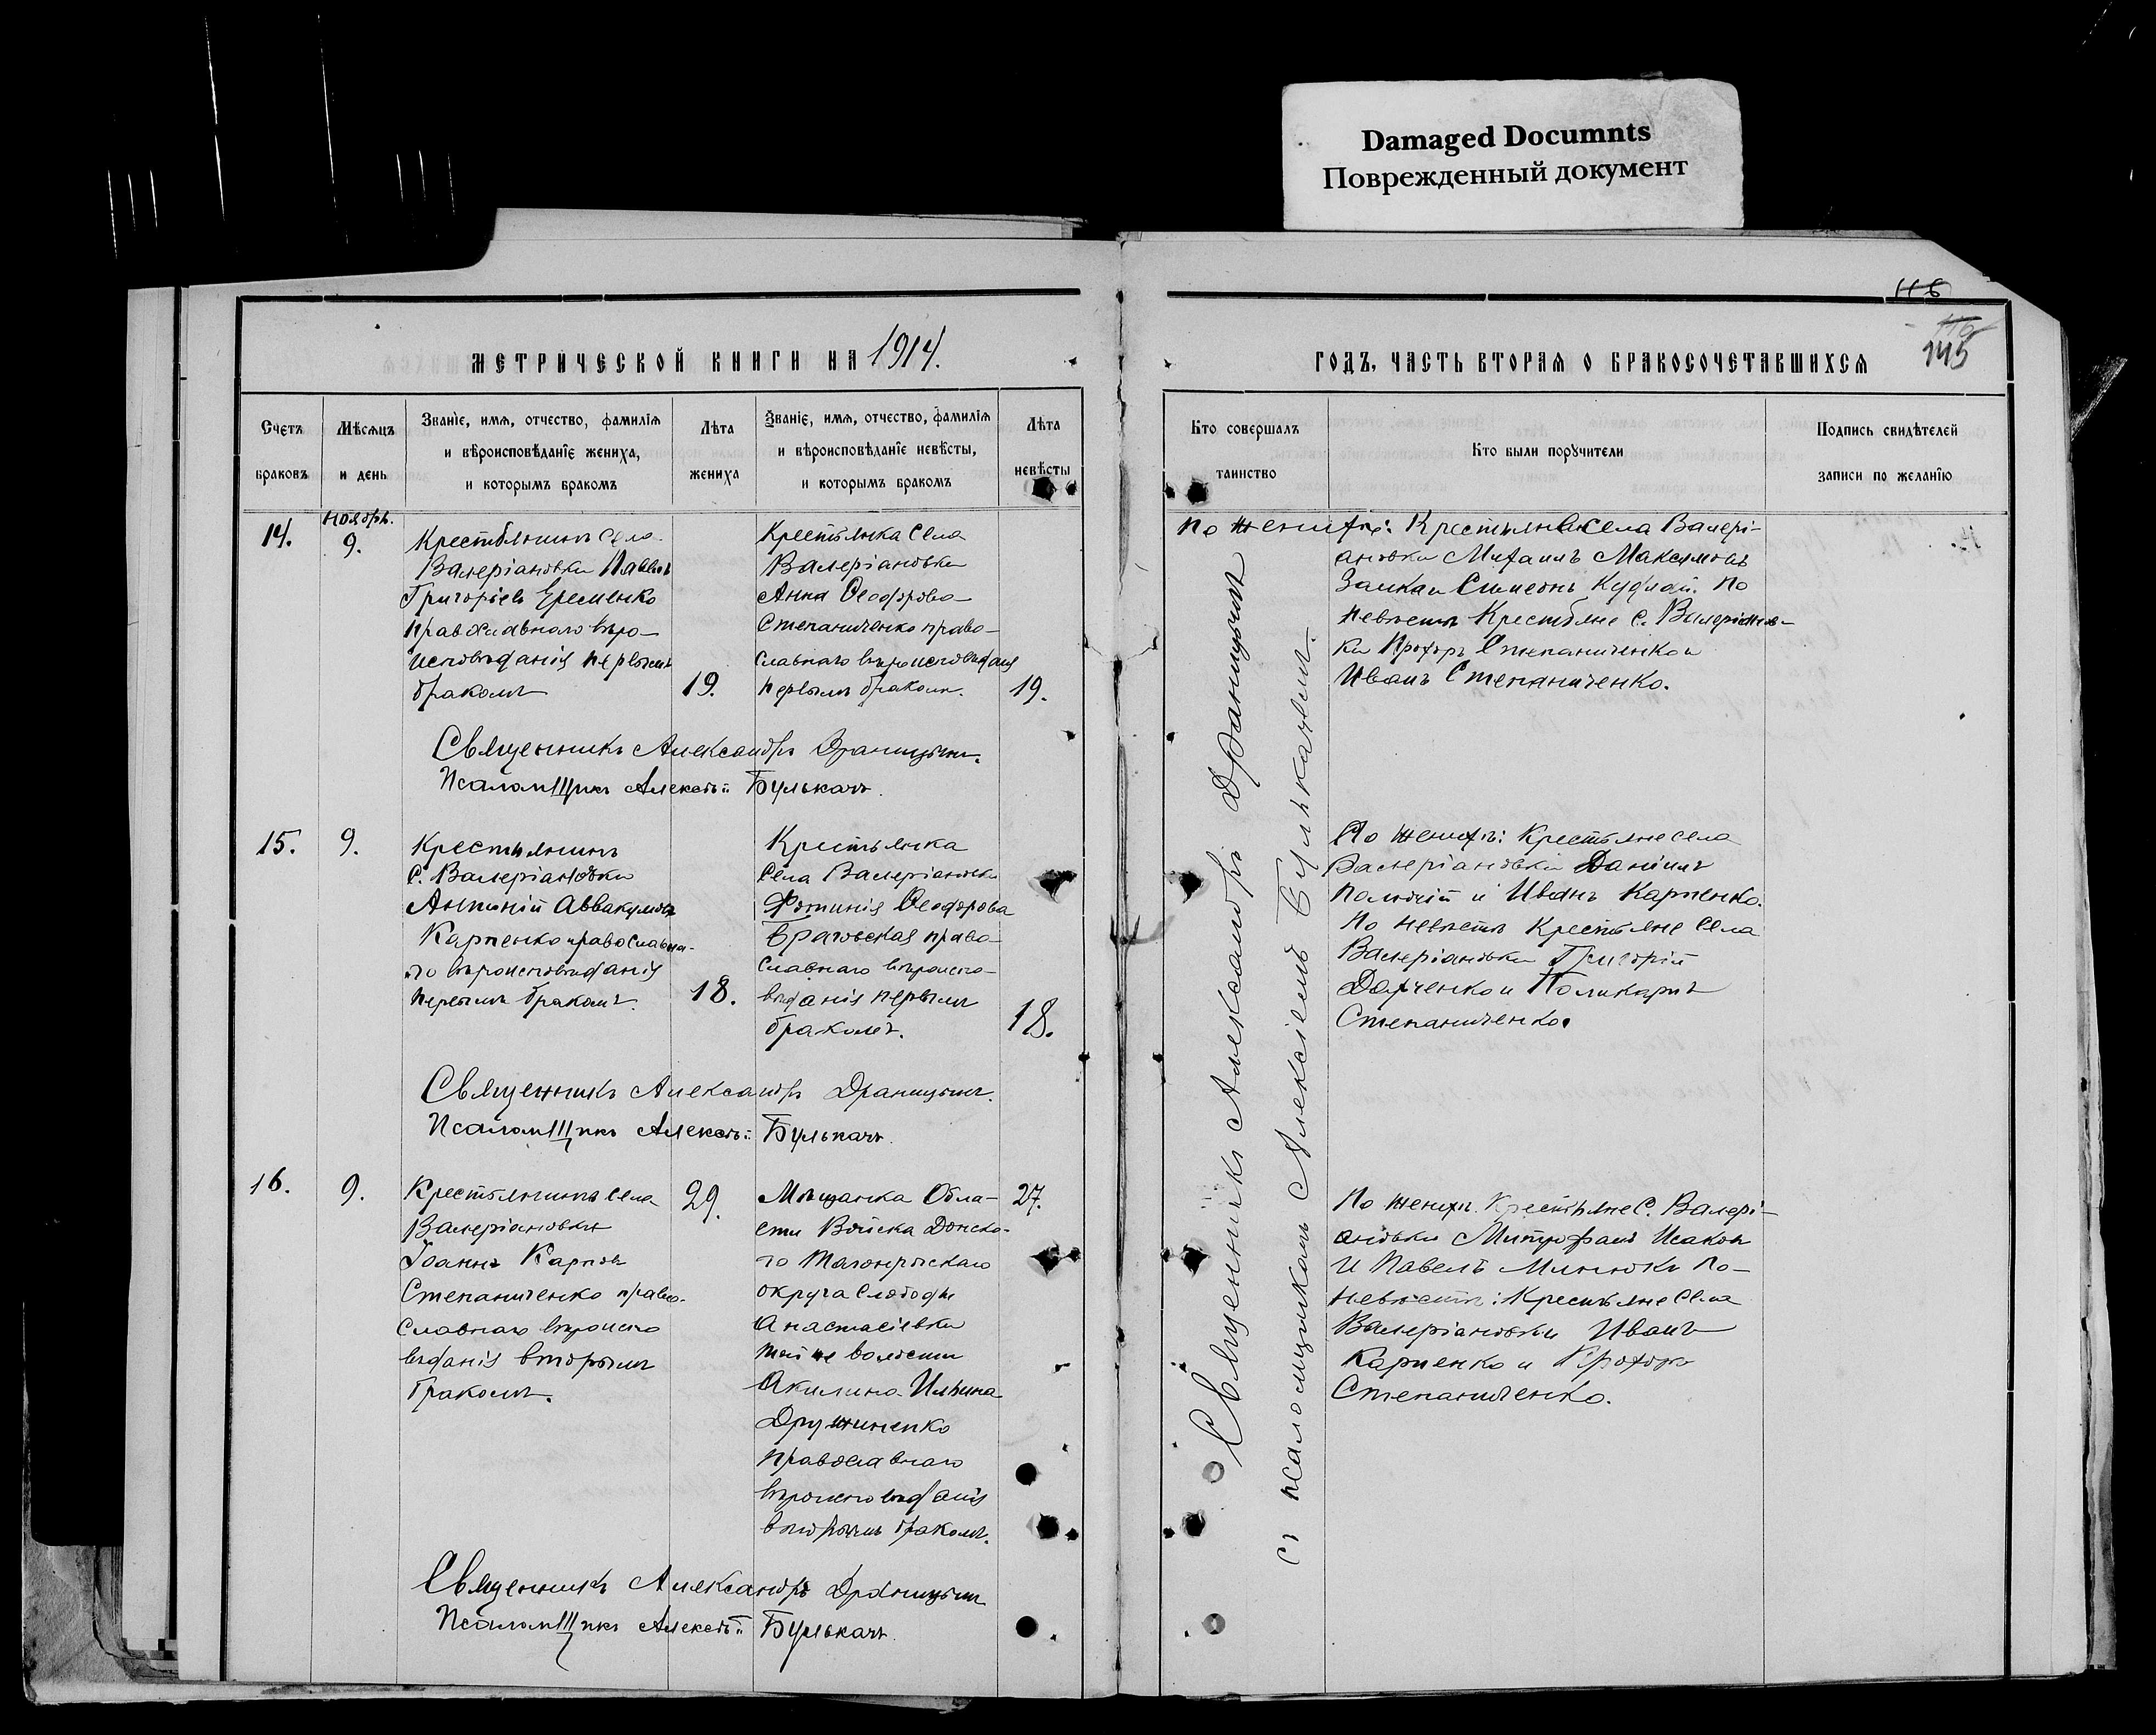 Damaged Documnts
Поврежденный документ
116
145
МЕТРИЧЕСКОЙ КНИГИ НА 1914.
ГОДЪ, ЧАСТЬ ВТОРАЯ О БРАКОСОЧЕТАВШИХСЯ
Счетъ браковъ
Мѣсяцъ и день
Званіе, имя, отчество, фамилія
и вѣроисповѣданіе жениха,
и которымъ бракомъ
Лѣта жениха
Званіе, имя, отчество, фамилія
и вѣроисповѣданіе невѣсты,
и которымъ бракомъ
Лѣта невѣсты
Кто совершалъ таинство
Кто были поручители
Подпись свидѣтелей
записи по желанію
14.
Ноябрь.
9.
Крестьянинъ села
Валеріановки Павелъ
Григорьевъ Еременко
православнаго вѣро-
исповѣданія первымъ
бракомъ
19.
Крестьянка села
Валеріановки
Анна Ѳеодорова
Степаниченко право-
славнаго вѣроисповѣданія
первымъ бракомъ.
19.
По женихѣ: Крестьяне села Валері-
ановки Михаилъ Максимовъ
Заика и Симеонъ Кудлай. По
невѣстѣ Крестьяне с. Валеріанов-
ки Прохоръ Степаниченко и
Иванъ Степаниченко.
Священникъ Александръ Драницынъ.
Псаломщикъ Алексѣй Булькачъ.
15.
9.
Крестьянинъ
с. Валеріановки
Антоній Аввакумовъ
Карпенко православна-
го вѣроисповѣданія
первымъ бракомъ.
18.
Крестьянка
села Валеріановки
Фотинія Ѳеодорова
православнаго вѣроиспо-
вѣданія первымъ
бракомъ.
18.
По женихѣ: Крестьяне села
Валеріановки Даніилъ
и Иванъ Карпенко.
По невѣстѣ Крестьяне села
Валеріановки Григорій
и Поликарпъ
Степаниченко.
Священникъ Александръ Драницынъ.
Псаломщикъ Алексѣй Булькачъ.
16.
9.
Крестьянинъ села
Валеріановки
Іоаннъ Карповъ
Степаниченко право-
славнаго вѣроиспо
вѣданія вторымъ
бракомъ.
29.
Мѣщанка Обла-
сти Войска Донско-
го Таганрогскаго
округа слободы
Анастасіевки
той же волости
Акилина Ильина
Дружиненко
православнаго
вѣроисповѣданія
вторымъ бракомъ.
27.
По женихѣ Крестьяне с. Валері-
ановки Митрофанъ Исаковъ
и Павелъ Минюкъ По
невѣстѣ: Крестьяне села
Валеріановки Иванъ
Карпенко и Прохоръ
Степаниченко.
Священникъ Александръ Драницынъ
Псаломщикъ Алексѣй Булькачъ.
Священникъ Александръ Драницынъ
съ псаломщикомъ Алексѣемъ Булькачемъ.